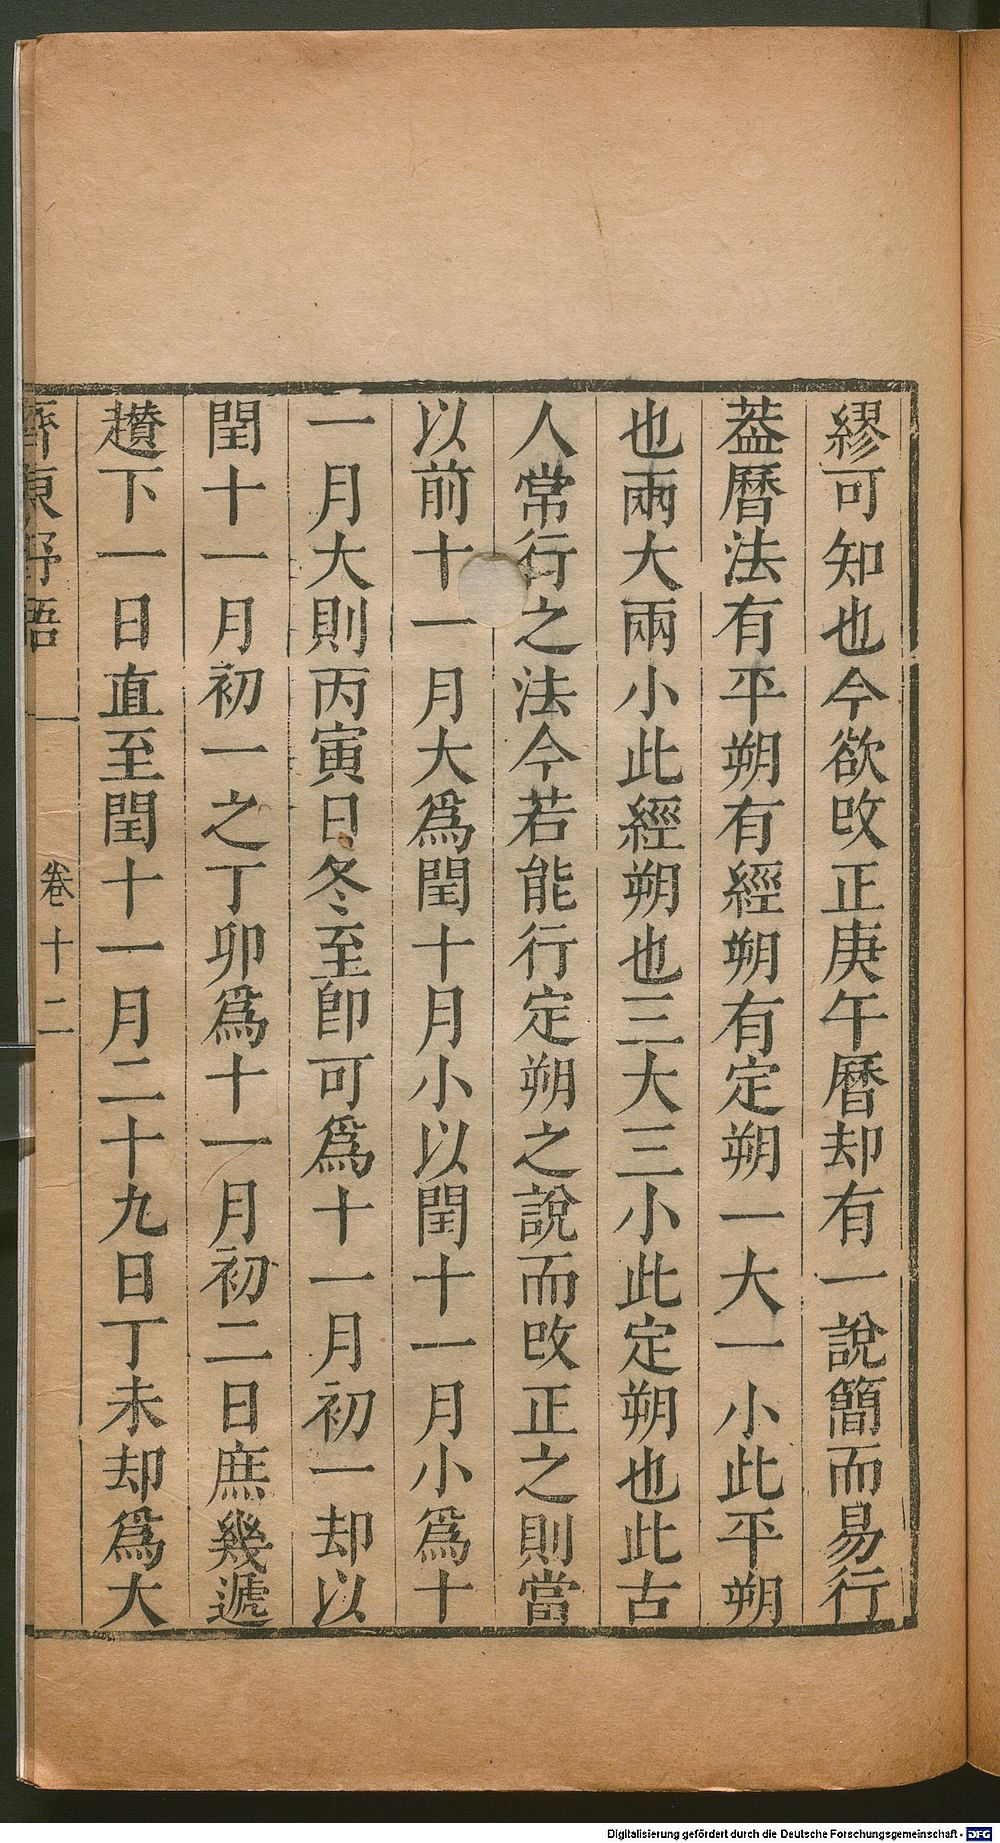 繆可知也今欲攺正庚午曆却有一說簡而易行
葢曆法有平朔有經朔有定朔一大一小此平朔
也兩大兩小此經朔也三大三小此定朔也此古
人常行之法今若能行定朔之說而攺正之則當
以前十一月大爲閏十月小以閏十一月小爲十
一月大則丙寅日冬至卽可爲十一月初一却以
閏十一月初一之丁卯爲十一月初二日庶幾遞
趲下一日直至閏十一月二十九日丁未却爲大
齊東野語 卷十二
Digitalisierung gefördert durch die Deutsche Forschungsgemeinschaft - DFG